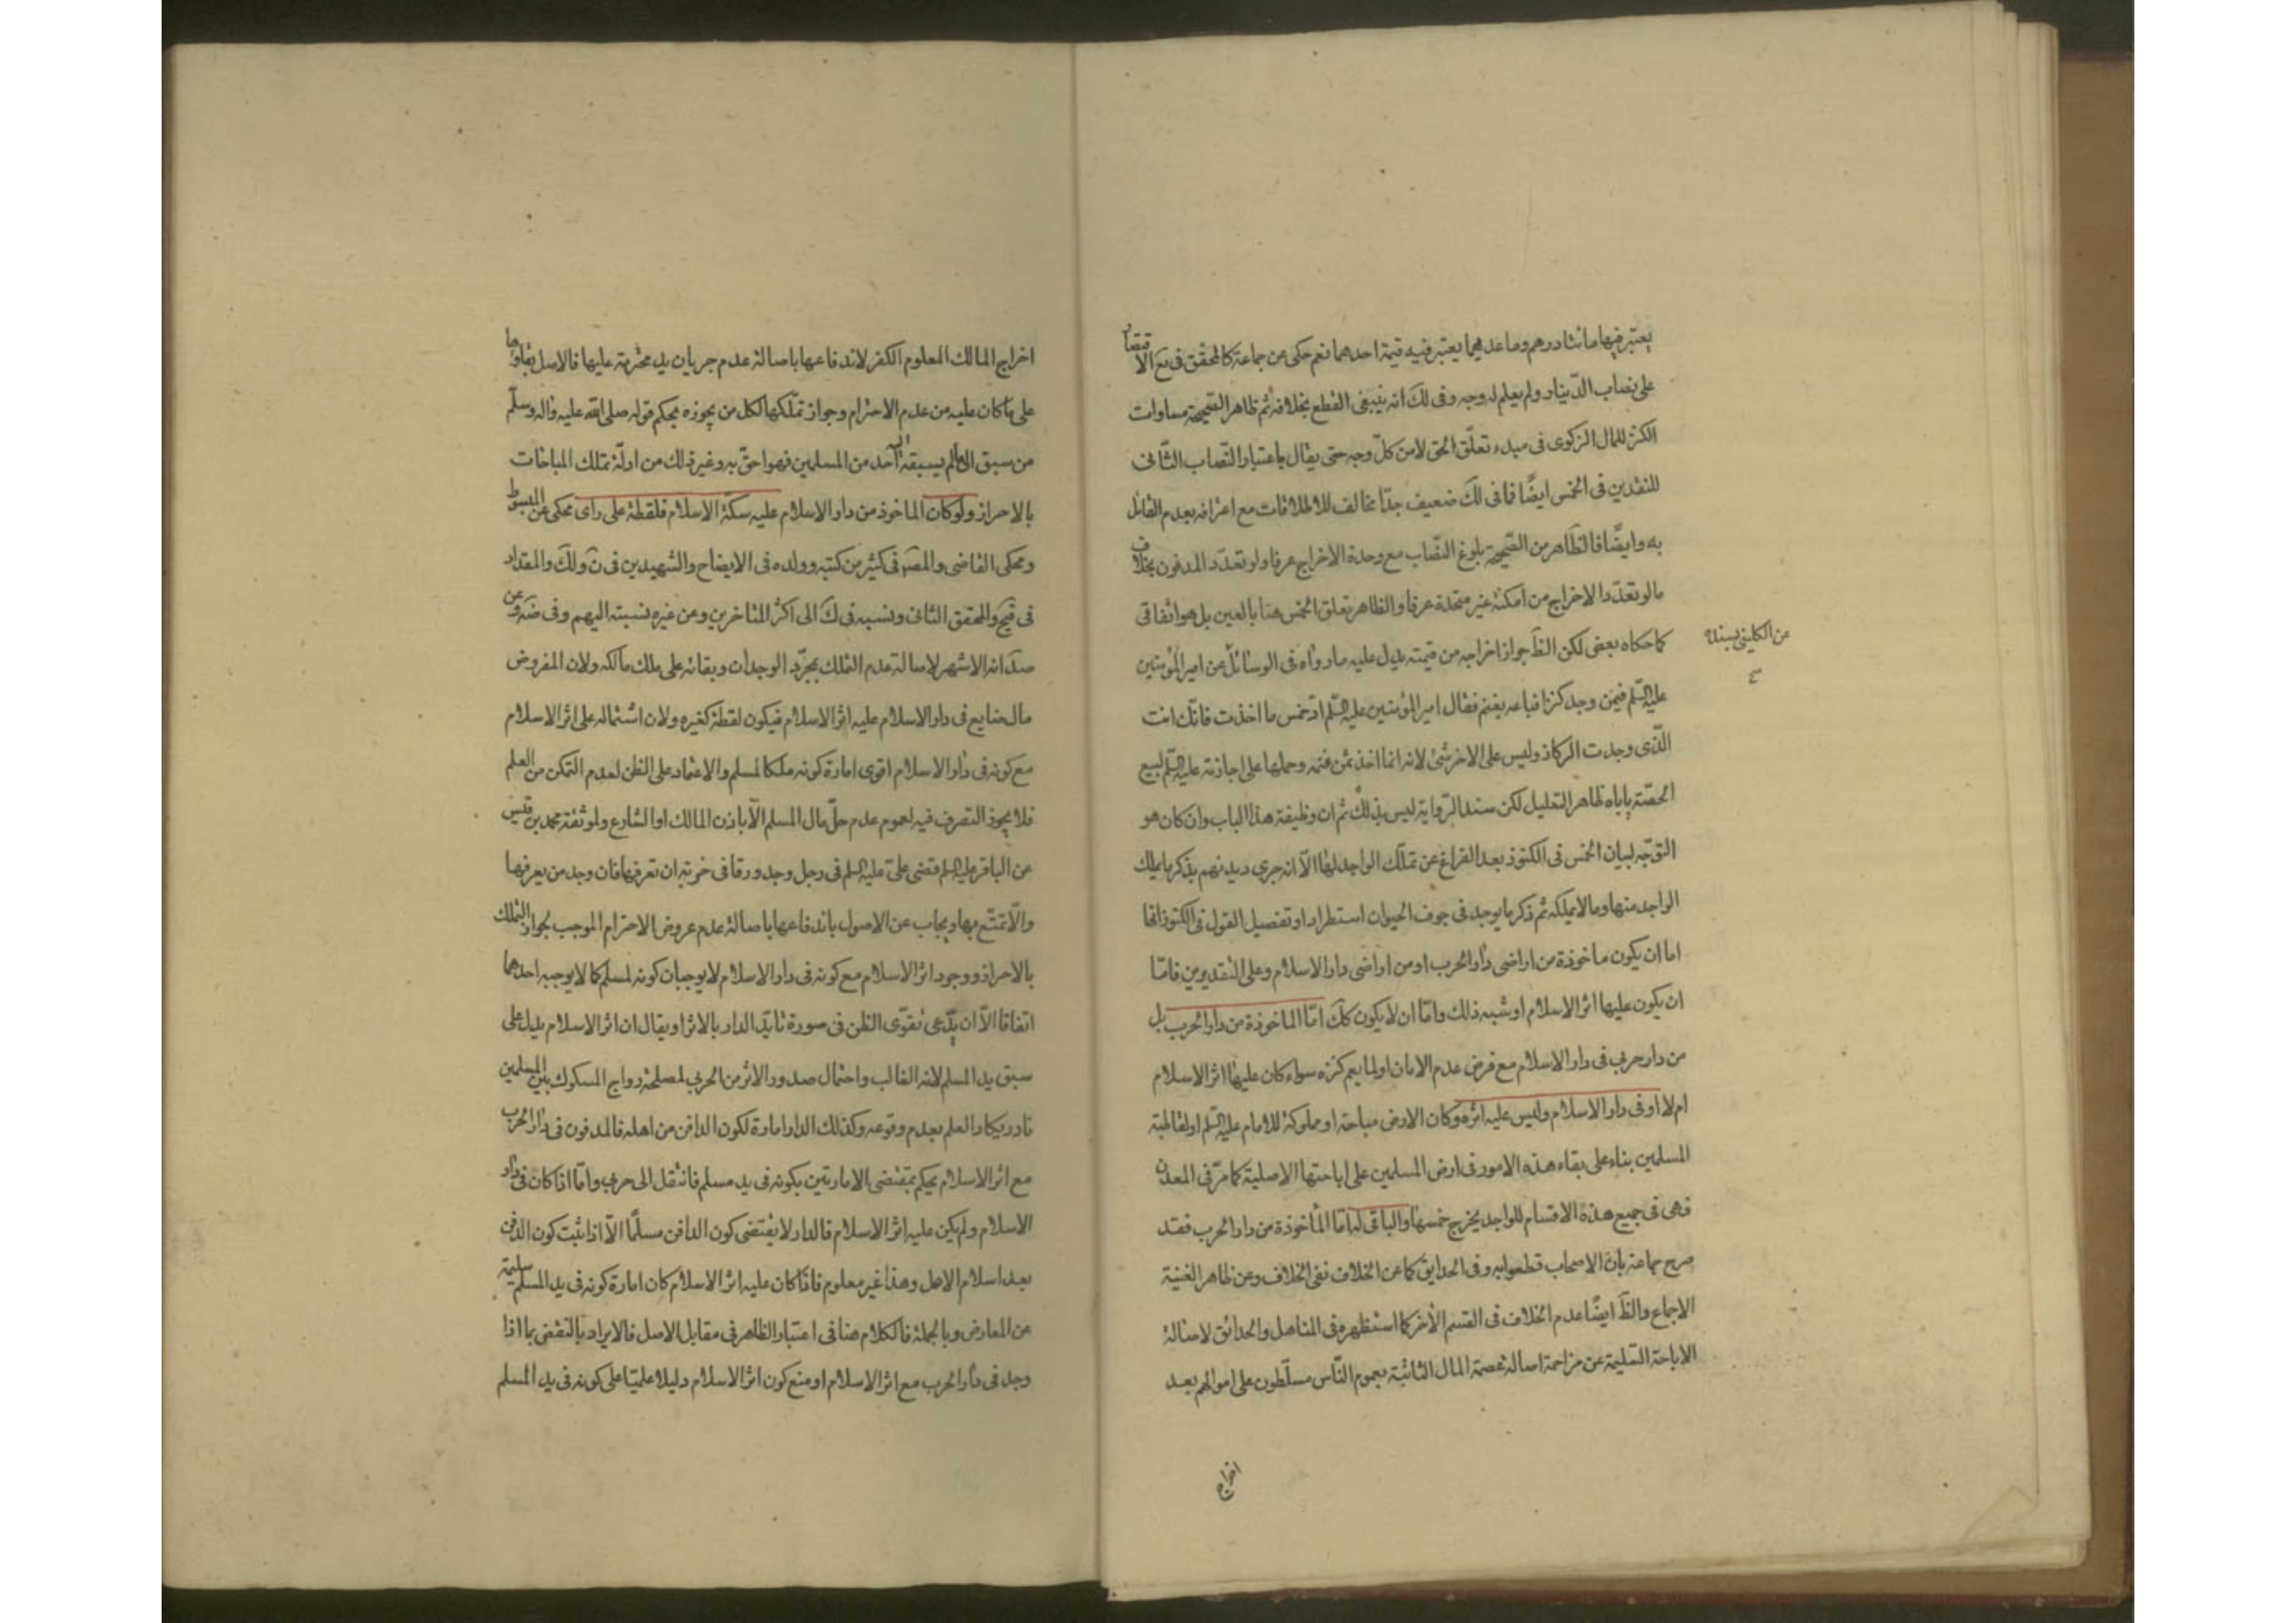 يعتبر فيها مائتا درهم وما عداهما يعتبر فيه قيمة احدهما نعم حكى عن جماعة كالمحقق فى يع الاقتصار
على نصاب الدّينار ولم يعلم له وجه وفى لك انه ينبغى القطع بخلافه ثم ظاهر الصّحيحة مساوات
الكنز للمال الزكوى فى مبدء تعلّق الحق لا من كلّ وجه حتى يقال باعتبار النّصاب الثّانى
للنقدين فى الخمس ايضًا فما فى لك ضعيف جدّا مخالف للاطلاقات مع اعترافه بعدم القائل
به وايضًا فالظاهر من الصّحيحة بلوغ النصّاب مع وحدة الاخراج عرفا ولو تعدّد المدفون بخلاف
ما لو تعدّد الاخراج من امكنة غير متحدة عرفا والظاهر تعلق الخمس هنا بالعين بل هو اتفاقى
كما حكاه بعض لكن الظَ جواز اخراجه من قيمته يدل عليه ما رواه فى الوسائل عن امير المؤمنين
من الكلينى بسنده
عليه السّلم فيمن وجد كنزا فباعه بغنم فقال امير المؤمنين عليه السّلم ادّ خمس ما اخذت فانّك انت
الّذى وجدت الركاز وليس على الاخر شئ لانه انما اخذ ثمن غنمه وحملها على اجازته عليه السّلم لبيع
الحصّة يأباه ظاهر التعليل لكن سند الرّواية ليس بذلك ثم ان وظيفة هذا الباب وان كان هو
التوجّه لبيان الخمس فى الكنوز بعد الفراغ عن تملّك الواجد لها الّا انه جرى ديدنهم بذكر ما يملك
الواجد منها وما لا يملكه ثم ذكر ما يوجد فى جوف الحيوان استطرادا وتفصيل القول فى الكنوز انها
اما ان يكون ماخوذة من اراضى دار الحرب او من اراضى دار الاسلام وعلى التقديرين فامّا
ان يكون عليها اثر الاسلام او شبه ذلك وامّا ان لا يكون كك امّا الماخوذة من دار الحرب بل
من دار حربى فى دار الاسلام مع فرض عدم الامان او لما يعم كنزه سواء كان عليها اثر الاسلام
ام لا او فى دار الاسلام وليس عليه اثره وكان الارض مباحة او مملوكة للامام عليه السّلم او لقاطبة
المسلمين بناء على بقاء هذه الامور فى ارض المسلمين على اباحتها الاصلية كما مرّ فى المعدن
فهى فى جميع هذه الاقسام للواجد يخرج خمسها والباقى له امّا المأخوذة من دار الحرب فقد
صرح جماعة بان الاصحاب قطعوا به وفى الحدايق كما عن الخلاف نفى الخلاف وعن ظاهر الغنية
الاجماع والظَ ايضًا عدم الخلاف فى القسم الأخر كما استظهره فى المناهل والحدائق لاصالة
الاباحة السّليمة عن مزاحمة اصالة عصمة المال الثابتة بعموم النّاس مسلّطون على اموالهم بعد
اخراج
اخراج المالك المعلوم الكفر لاندفاعها باصالة عدم جريان يد محترمة عليها فالاصل بقاؤها
على ما كان عليه من عدم الاحترام وجواز تملّكها لكل من يحوزه بحكم قوله صلى الله عليه واله وسلّم
من سبق الى ما لم يسبقه اليه احد من المسلمين فهو احقّ به وغير ذلك من ادلّة تملك المباحات
بالاحراز ولو كان الماخوذ من دار الاسلام عليه سكّة الاسلام فلقطة على راى محكى عن المبسوط
ومحكى القاضى والمصَ فى كثير من كتبه وولده فى الايضاح والشهيدين فى نَ ولك والمقداد
فى قيح والمحقق الثانى ونسبه فى ك الى اكثر المتاخرين وعن غيره نسبته اليهم وفى ضه وعن
ضدَ انه الاشهر لاصالة عدم التملك بمجرّد الوجدان وبقائه على ملك مالكه ولان المفروض
مال ضايع فى دار الاسلام عليه اثر الاسلام فيكون لقطة كغيره ولان اشتماله على اثر الاسلام
مع كونه فى دار الاسلام اقوى امارة كونه ملكا لمسلم والاعتماد على الظن لعدم التمكن من العلم
فلا يجوز التصرف فيه لعموم عدم حلّ مال المسلم الّا باذن المالك او الشارع ولموثقة محمد بن قيس
عن الباقر عليه السلم قضى علىّ عليه السلم فى رجل وجد ورقا فى خربة ان تعرفها فان وجد من يعرفها
والّا تمتّع بها ويجاب عن الاصول باندفاعها باصالة عدم عروض الاحترام الموجب لجواز التملك
بالاحراز ووجود اثر الاسلام مع كونه فى دار الاسلام لا يوجبان كونه لمسلم كما لا يوجبه احدهما
اتفاقا الّا ان يدّعى تقوّى الظن فى صورة تايّد الدار بالاثر او يقال ان اثر الاسلام يدل على
سبق يد المسلم لانه الغالب واحتمال صدور الاثر من الحربى لمصلحة رواج المسكوك بين المسلمين
نادر يكاد العلم بعدم وقوعه وكذلك الدار امارة لكون الدافن من اهله فالمدفون فى دار الحرب
مع اثر الاسلام يحكم بمقتضى الامارتين بكونه فى يد مسلم فانتقل الى حربى وامّا اذا كان فى دار
الاسلام ولم يكن عليه اثر الاسلام فالدار لا يقتضى كون الدافن مسلمًا الّا اذا ثبت كون الدفن
بعد اسلام الاهل وهذا غير معلوم فاذا كان عليه اثر الاسلام كان امارة كونه فى يد المسلم سليمة
عن المعارض وبالجملة فالكلام هنا فى اعتبار الظاهر فى مقابل الاصل فالايراد بالنقض بما اذا
وجد فى دار الحرب مع اثر الاسلام او منع كون اثر الاسلام دليلا علميّا على كونه فى يد المسلم